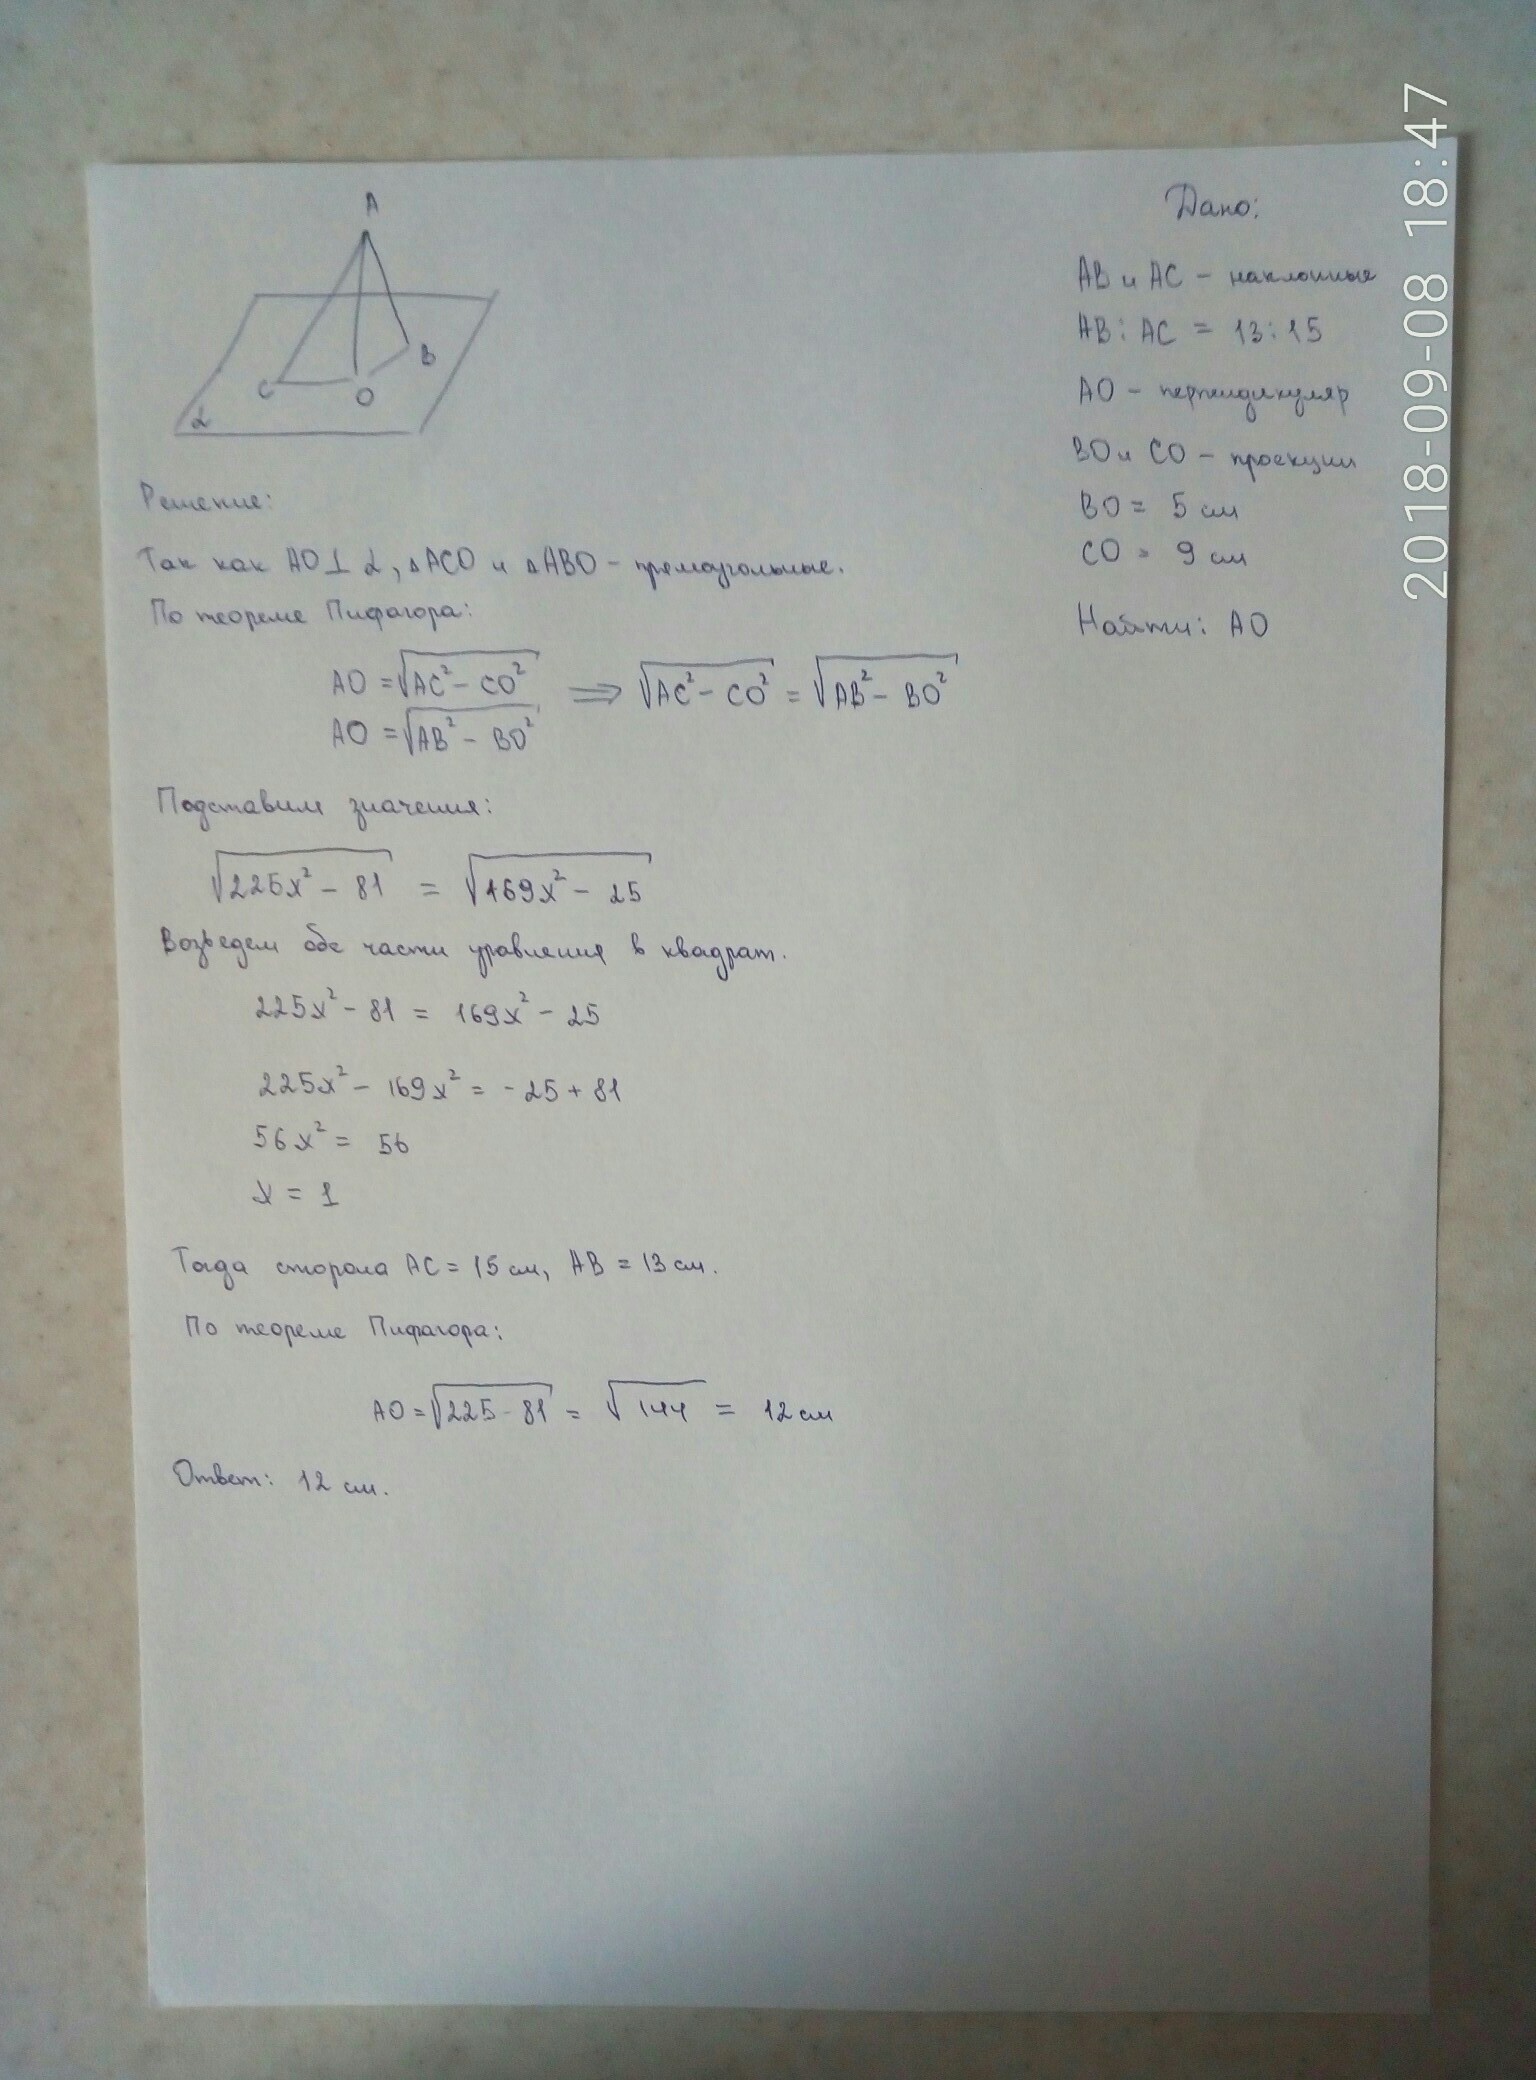 A
C
O
B
α
Дано:
AB и AC - наклонные
AB : AC = 13 : 15
AO - перпендикуляр
BO и CO - проекции
BO = 5 см
CO = 9 см
Найти: AO
Решение:
Так как AO ⊥ α, △ACO и △ABO - прямоугольные.
По теореме Пифагора:
AO = √AC² - CO² ⟹ √AC² - CO² = √AB² - BO²
AO = √AB² - BO²
Подставим значения:
√225x² - 81 = √169x² - 25
Возведем обе части уравнения в квадрат.
225x² - 81 = 169x² - 25
225x² - 169x² = -25 + 81
56x² = 56
x = 1
Тогда сторона AC = 15 см, AB = 13 см.
По теореме Пифагора:
AO = √225 - 81 = √144 = 12 см
Ответ: 12 см.
2018-09-08 18:47